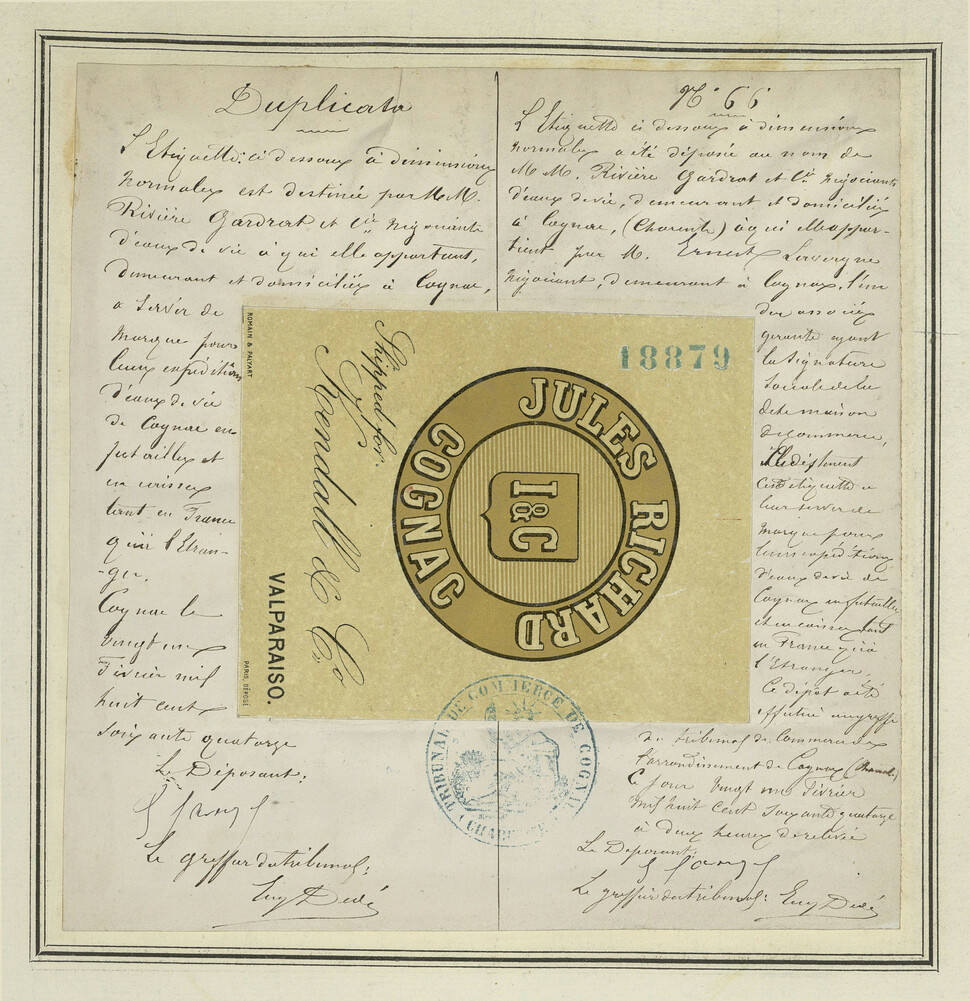 Duplicata
L'Etiquette ci dessous à dimensions
normales est destinée par M.M.
Rivière Gardrat et Cie négociants
d'eaux de vie à qui elle appartient,
demeurant et domiciliés à Cognac,
à servir de
marque pour
leurs expéditions
d'eaux de vie
de Cognac en
futailles et
en caisses
tant en France
qu'à l'Etran-
-ger.
Cognac le
vingt un
Février mil
huit cent
soixante quatorze
Le Déposant:
Le greffier du tribunal:
Eug Dédé
N° 66
L'Etiquette ci dessous à dimensions
normales a été déposée au nom de
M.M. Rivière Gardrat et Cie négociants
d'eaux de vie, demeurant et domiciliés
à Cognac, (Charente) à qui elle appar-
tient par M. Ernest
négociant, demeurant à Cognac, l'un
des associés
gérants ayant
la signature
sociale de la
dite maison
de commerce,
Ils destinent
cette étiquette à
leur servir de
marque pour
leurs expéditions
d'eaux de vie de
Cognac en futailles
et en caisses tant
en France qu'à
l'Etranger.
Ce dépôt a été
effectué au greffe
du tribunal de Commerce de
l'arrondissement de Cognac (Charente)
ce jour vingt un Février
mil huit cent soixante quatorze
à deux heures de relevée
Le Déposant:
Le greffier du tribunal: Eug Dédé
18879
JULES RICHARD
COGNAC
I&C
Shipped for
Kendall & Co
VALPARAISO.
ROMAIN & PALYART
PARIS, DÉPOSÉ
TRIBUNAL DE COMMERCE DE COGNAC
CHARENTE